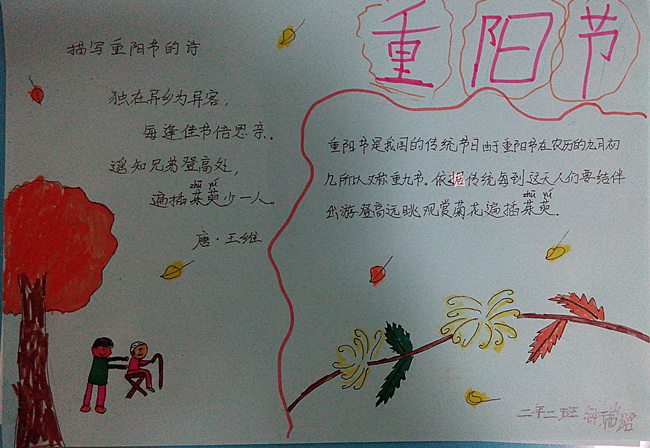 重阳节
描写重阳节的诗
独在异乡为异客，
每逢佳节倍思亲。
遥知兄弟登高处，
zhū yú
遍插茱萸少一人。
唐·王维
重阳节是我国的传统节日由于重阳节在农历的九月初
九所以又称重九节。依据传统每到这天人们要结伴
zhū yú
出游登高远眺观赏菊花遍插茱萸。
二年二班